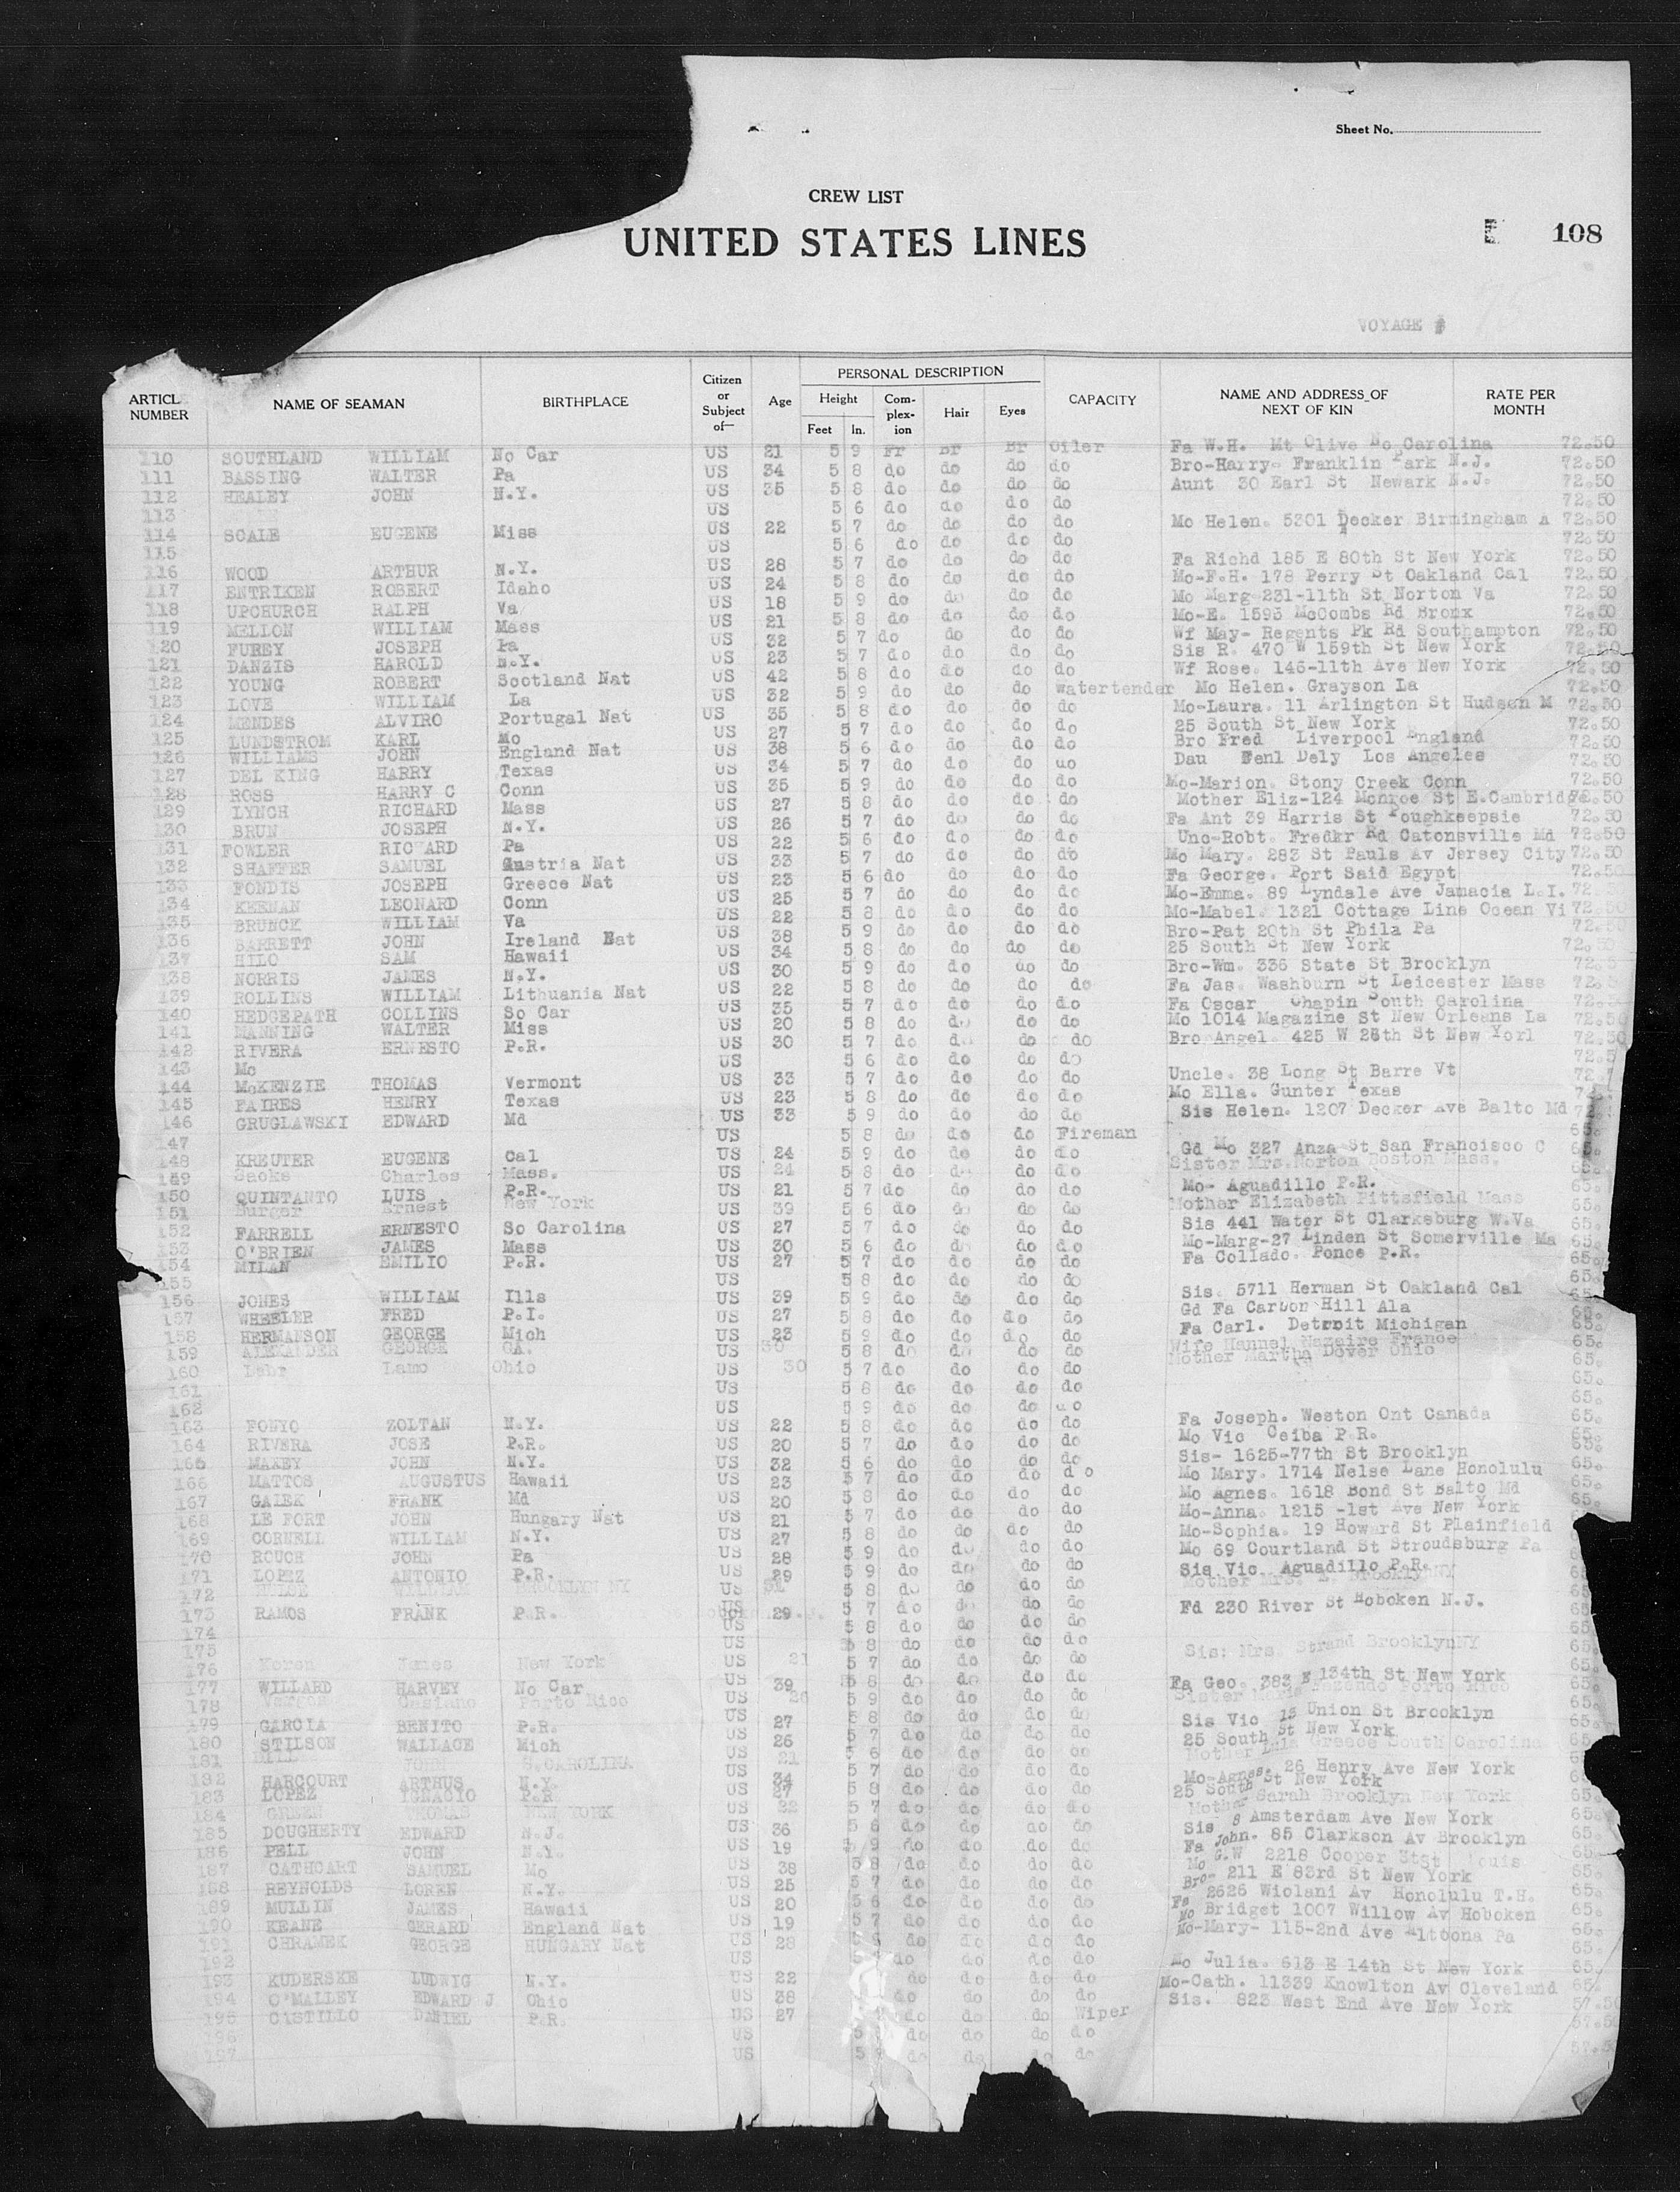 Sheet No.
CREW LIST
UNITED STATES LINES
108
VOYAGE #
ARTICL NUMBER NAME OF SEAMAN BIRTHPLACE Citizen or Subject of— Age PERSONAL DESCRIPTION Height Feet In. Com-plex-ion Hair Eyes CAPACITY NAME AND ADDRESS OF NEXT OF KIN RATE PER MONTH
110 SOUTHLAND WILLIAM No Car US 21 5 9 Fr Br Br Oiler Fa W.H. Mt Olive No Carolina 72.50
111 BASSING WALTER Pa US 34 5 8 do do do do Bro-Harry- Franklin Park N.J. 72.50
112 HEALEY JOHN N.Y. US 35 5 8 do do do do Aunt 30 Earl St Newark N.J. 72.50
113 US 5 6 do do do do 72.50
114 SCALE EUGENE Miss US 22 5 7 do do do do Mo Helen. 5301 Decker Birmingham A 72.50
115 US 5 6 do do do do 72.50
116 WOOD ARTHUR N.Y. US 28 5 7 do do do do Fa Richd 185 E 80th St New York 72.50
117 ENTRIKEN ROBERT Idaho US 24 5 8 do do do do Mo-F.H. 178 Perry St Oakland Cal 72.50
118 UPCHURCH RALPH Va US 18 5 9 do do do do Mo Marg 231-11th St Norton Va 72.50
119 MELLON WILLIAM Mass US 21 5 8 do do do do Mo-E. 1593 McCombs Rd Bronx 72.50
120 FUREY JOSEPH Pa US 32 5 7 do do do do Wf May- Regents Pk Rd Southampton 72.50
121 DANZIS HAROLD N.Y. US 23 5 7 do do do do Sis R. 470 W 159th St New York 72.50
122 YOUNG ROBERT Scotland Nat US 42 5 8 do do do do Wf Rose. 146-11th Ave New York 72.50
123 LOVE WILLIAM La US 32 5 9 do do do watertender Mo Helen. Grayson La 72.50
124 MENDES ALVIRO Portugal Nat US 35 5 8 do do do do Mo-Laura. 11 Arlington St Hudson M 72.50
125 LUNDSTROM KARL Mo US 27 5 7 do do do do 25 South St New York 72.50
126 WILLIAMS JOHN England Nat US 38 5 6 do do do do Bro Fred Liverpool England 72.50
127 DEL KING HARRY Texas US 34 5 7 do do do do Dau Fenl Dely Los Angeles 72.50
128 ROSS HARRY C Conn US 35 5 9 do do do do Mo-Marion. Stony Creek Conn 72.50
129 LYNCH RICHARD Mass US 27 5 8 do do do do Mother Eliz-124 Monroe St E.Cambridge 72.50
130 BRUN JOSEPH N.Y. US 26 5 7 do do do do Fa Ant 39 Harris St Poughkeepsie 72.50
131 FOWLER RICHARD Pa US 22 5 6 do do do do Unc-Robt. Fredkr Rd Catonsville Md 72.50
132 SHAFFER SAMUEL Austria Nat US 33 5 7 do do do do Mo Mary. 283 St Pauls Av Jersey City 72.50
133 FONDIS JOSEPH Greece Nat US 23 5 6 do do do do Fa George. Port Said Egypt 72.50
134 KEENAN LEONARD Conn US 25 5 7 do do do do Mo-Emma. 89 Lyndale Ave Jamacia L.I. 72.50
135 BRUNCK WILLIAM Va US 22 5 8 do do do do Mo-Mabel. 1321 Cottage Line Ocean Vi 72.50
136 BARRETT JOHN Ireland Nat US 38 5 9 do do do do Bro-Pat 20th St Phila Pa 72.50
137 HILO SAM Hawaii US 34 5 8 do do do do 25 South St New York 72.50
138 NORRIS JAMES N.Y. US 30 5 9 do do do do Bro-Wm. 336 State St Brooklyn 72.5
139 ROLLINS WILLIAM Lithuania Nat US 22 5 8 do do do do Fa Jas. Washburn St Leicester Mass 72.5
140 HEDGEPATH COLLINS So Car US 35 5 7 do do do do Fa Oscar Chapin South Carolina 72.50
141 MANNING WALTER Miss US 20 5 8 do do do do Mo 1014 Magazine St New Orleans La 72.50
142 RIVERA ERNESTO P.R. US 30 5 7 do do do do Bro Angel. 425 W 26th St New Yorl 72.50
143 Mc US 5 6 do do do do 72.5
144 McKENZIE THOMAS Vermont US 33 5 7 do do do do Uncle. 38 Long St Barre Vt 72.
145 FAIRES HENRY Texas US 23 5 8 do do do do Mo Ella. Gunter Texas
146 GRUGLAWSKI EDWARD Md US 33 5 9 do do do do Sis Helen. 1207 Decker Ave Balto Md
147 US 5 8 do do do Fireman 65.
148 KREUTER EUGENE Cal US 24 5 9 do do do do Gd Mo 327 Anza St San Francisco C 65.
149 Sacks Charles Mass. US 24 5 8 do do do do Sister Mrs.Norton Boston Mass. 65.
150 QUINTANTO LUIS P.R. US 21 5 7 do do do do Mo- Aguadillo P.R. 65.
151 Burgar Ernest New York US 39 5 6 do do do do Mother Elizabeth Pittsfield Mass 65.
152 FARRELL ERNESTO So Carolina US 27 5 7 do do do do Sis 441 Water St Clarksburg W.Va 65.
153 O'BRIEN JAMES Mass US 30 5 6 do do do do Mo-Marg-27 Linden St Somerville Ma 65.
154 MILAN EMILIO P.R. US 27 5 7 do do do do Fa Collado. Ponce P.R. 65.
155 US 5 8 do do do do 65.
156 JONES WILLIAM Ills US 39 5 9 do do do do Sis. 5711 Herman St Oakland Cal 65.
157 WHEELER FRED P.I. US 27 5 8 do do do do Gd Fa Carbon Hill Ala 65.
158 HERMANSON GEORGE Mich US 23 5 9 do do do do Fa Carl. Detroit Michigan 65.
159 ALEXANDER GEORGE GA. US 30 5 8 do do do do Wife Mannel Nazaire France 65.
160 Lahr Lamo Ohio US 30 5 7 do do do do Mother Martha Dover Ohio 65.
161 US 5 8 do do do do 65.
162 US 5 9 do do do do 65.
163 FONYO ZOLTAN N.Y. US 22 5 8 do do do do Fa Joseph. Weston Ont Canada 65.
164 RIVERA JOSE P.R. US 20 5 7 do do do do Mo Vic Ceiba P.R. 65.
165 MAXEY JOHN N.Y. US 32 5 6 do do do do Sis- 1625-77th St Brooklyn 65.
166 MATTOS AUGUSTUS Hawaii US 23 5 7 do do do do Mo Mary. 1714 Nelse Lane Honolulu 65.
167 GALEK FRANK Md US 20 5 8 do do do do Mo Agnes. 1618 Bond St Balto Md 65.
168 LE FORT JOHN Hungary Nat US 21 5 7 do do do do Mo-Anna. 1215 -1st Ave New York 65.
169 CORNELL WILLIAM N.Y. US 27 5 8 do do do do Mo-Sophia. 19 Howard St Plainfield
170 ROUCH JOHN Pa US 28 5 9 do do do do Mo 69 Courtland St Stroudsburg Pa
171 LOPEZ ANTONIO P.R. US 29 5 9 do do do do Sis Vic. Aguadillo P.R.
172 WILLIAM BROOKLYN NY US 31 5 8 do do do do Mother Mrs. E. Brooklyn NY
173 RAMOS FRANK P.R. US 29 5 7 do do do do Fd 230 River St Hoboken N.J. 65
174 US 5 8 do do do do 65.
175 US 5 8 do do do do Sis: Mrs. Strand BrooklynNY 65.
176 Koren James New York US 21 5 7 do do do do 65.
177 WILLARD HARVEY No Car US 39 5 8 do do do do Fa Geo. 383 E 134th St New York 65.
178 Casiano Porto Rico US 26 5 9 do do do do Sister Maria Porto Rico 65.
179 GARCIA BENITO P.R. US 27 5 8 do do do do Sis Vic 15 Union St Brooklyn 65.
180 STILSON WALLACE Mich US 26 5 7 do do do do 25 South St New York 65.
181 JOHN S.CAROLINA US 21 5 6 do do do do Mother Lula Greece South Carolina 65
182 HARCOURT ARTHUS N.Y. US 34 5 7 do do do do Mo-Agnes. 26 Henry Ave New York 65
183 LOPEZ IGNACIO P.R US 27 5 8 do do do do 25 South St New York 65.
184 GREEN THOMAS NEW YORK US 22 5 7 do do do do Mother Sarah Brooklyn New York 65.
185 DOUGHERTY EDWARD N.J. US 36 5 6 do do do do Sis 8 Amsterdam Ave New York 65.
186 PELL JOHN N.Y. US 19 5 9 do do do do Fa John. 85 Clarkson Av Brooklyn 65.
187 CATHCART SAMUEL Mo US 38 5 8 do do do do Mo G.W 2218 Cooper StSt Louis 65.
188 REYNOLDS LOREN N.Y. US 25 5 7 do do do do Bro- 211 E 83rd St New York 65.
189 MULLIN JAMES Hawaii US 20 5 6 do do do do Fa 2626 Wiolani Av Honolulu T.H. 65.
190 KEANE GERARD England Nat US 19 5 7 do do do do Mo Bridget 1007 Willow Av Hoboken 65.
191 CHRAMEK GEORGE HUNGARY Nat US 28 do do do do Mo-Mary- 115-2nd Ave Altoona Pa 65.
192 US do do do do 65.
193 KUDERSKE LUDWIG N.Y. US 22 do do do do Mo Julia. 613 E 14th St New York 65.
194 O'MALLEY EDWARD J Ohio US 38 do do do do Mo-Cath. 11339 Knowlton Av Cleveland 65.
195 CASTILLO DANIEL P.R. US 27 do do do Wiper Sis. 823 West End Ave New York 57.50
196 US 5 do do do do 57.50
197 US 5 do do do do 57.50